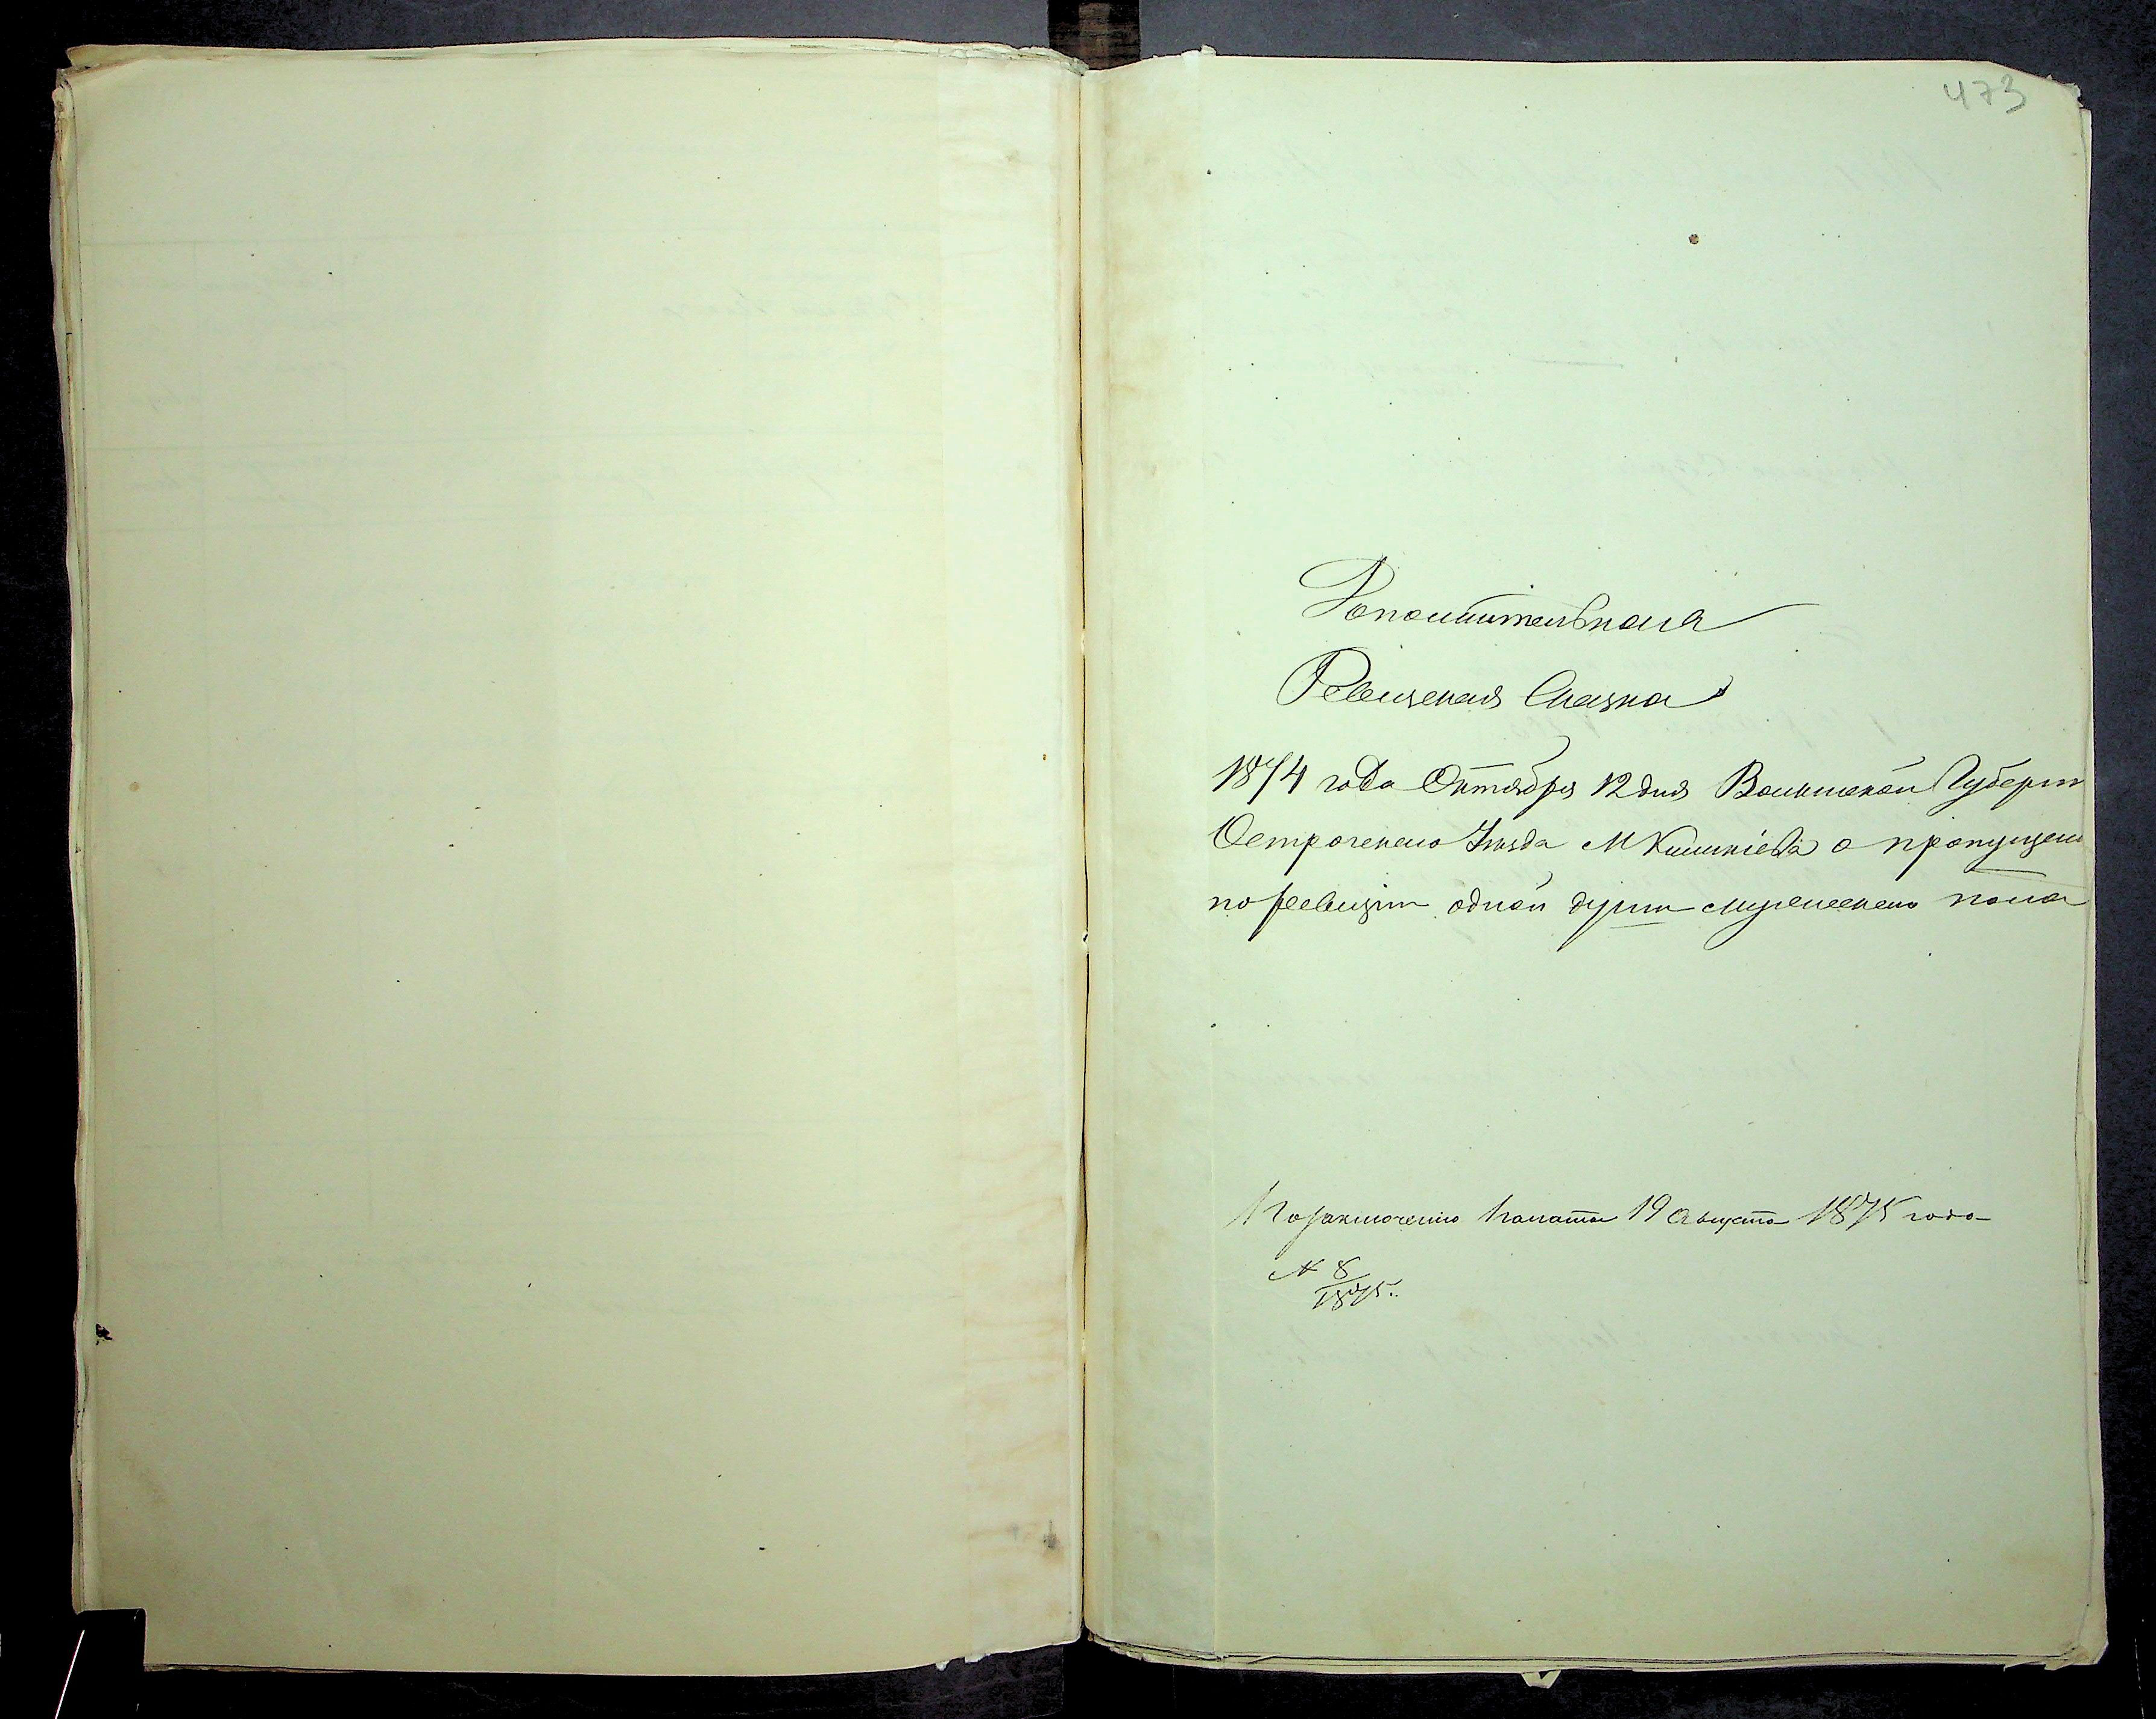 473
Дополнительная
Ревизская Сказка
1874 года Октября 12 дня Волынской Губерн
Острогскаго Уезда М Киликіева о пропущен
по ревизіи одной души мужескаго пола
По заключенію Палаты 19 Августа 1875 года
№ 8/1875.